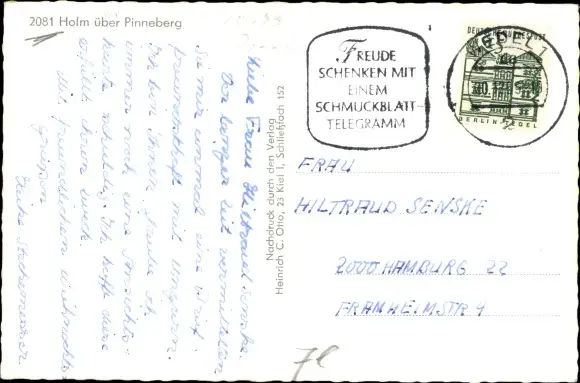 2081 Holm über Pinneberg
Liebe Frau Hiltraud Senske.
Vor langer Zeit vermittelten
Sie mir einmal eine Brief-
freundschaft mit Ungarn.
Ich bin Ihnen, glaube ich
immer noch eine Ansichts-
karte schuldig. Ich hoffe diese
erfüllt ihren Zweck.
Mit freundlichen
Grüßen
Nachdruck durch den Verlag
Heinrich C. Otto, 23 Kiel 1, Schließfach 152
FREUDE
SCHENKEN MIT
EINEM
SCHMUCKBLATT-
TELEGRAMM
WEDEL
DEUTSCHE BUNDESPOST
BERLIN-TEGEL
FRAU
HILTRAUD SENSKE
2000 HAMBURG 22
FRAMHEIMSTR 4